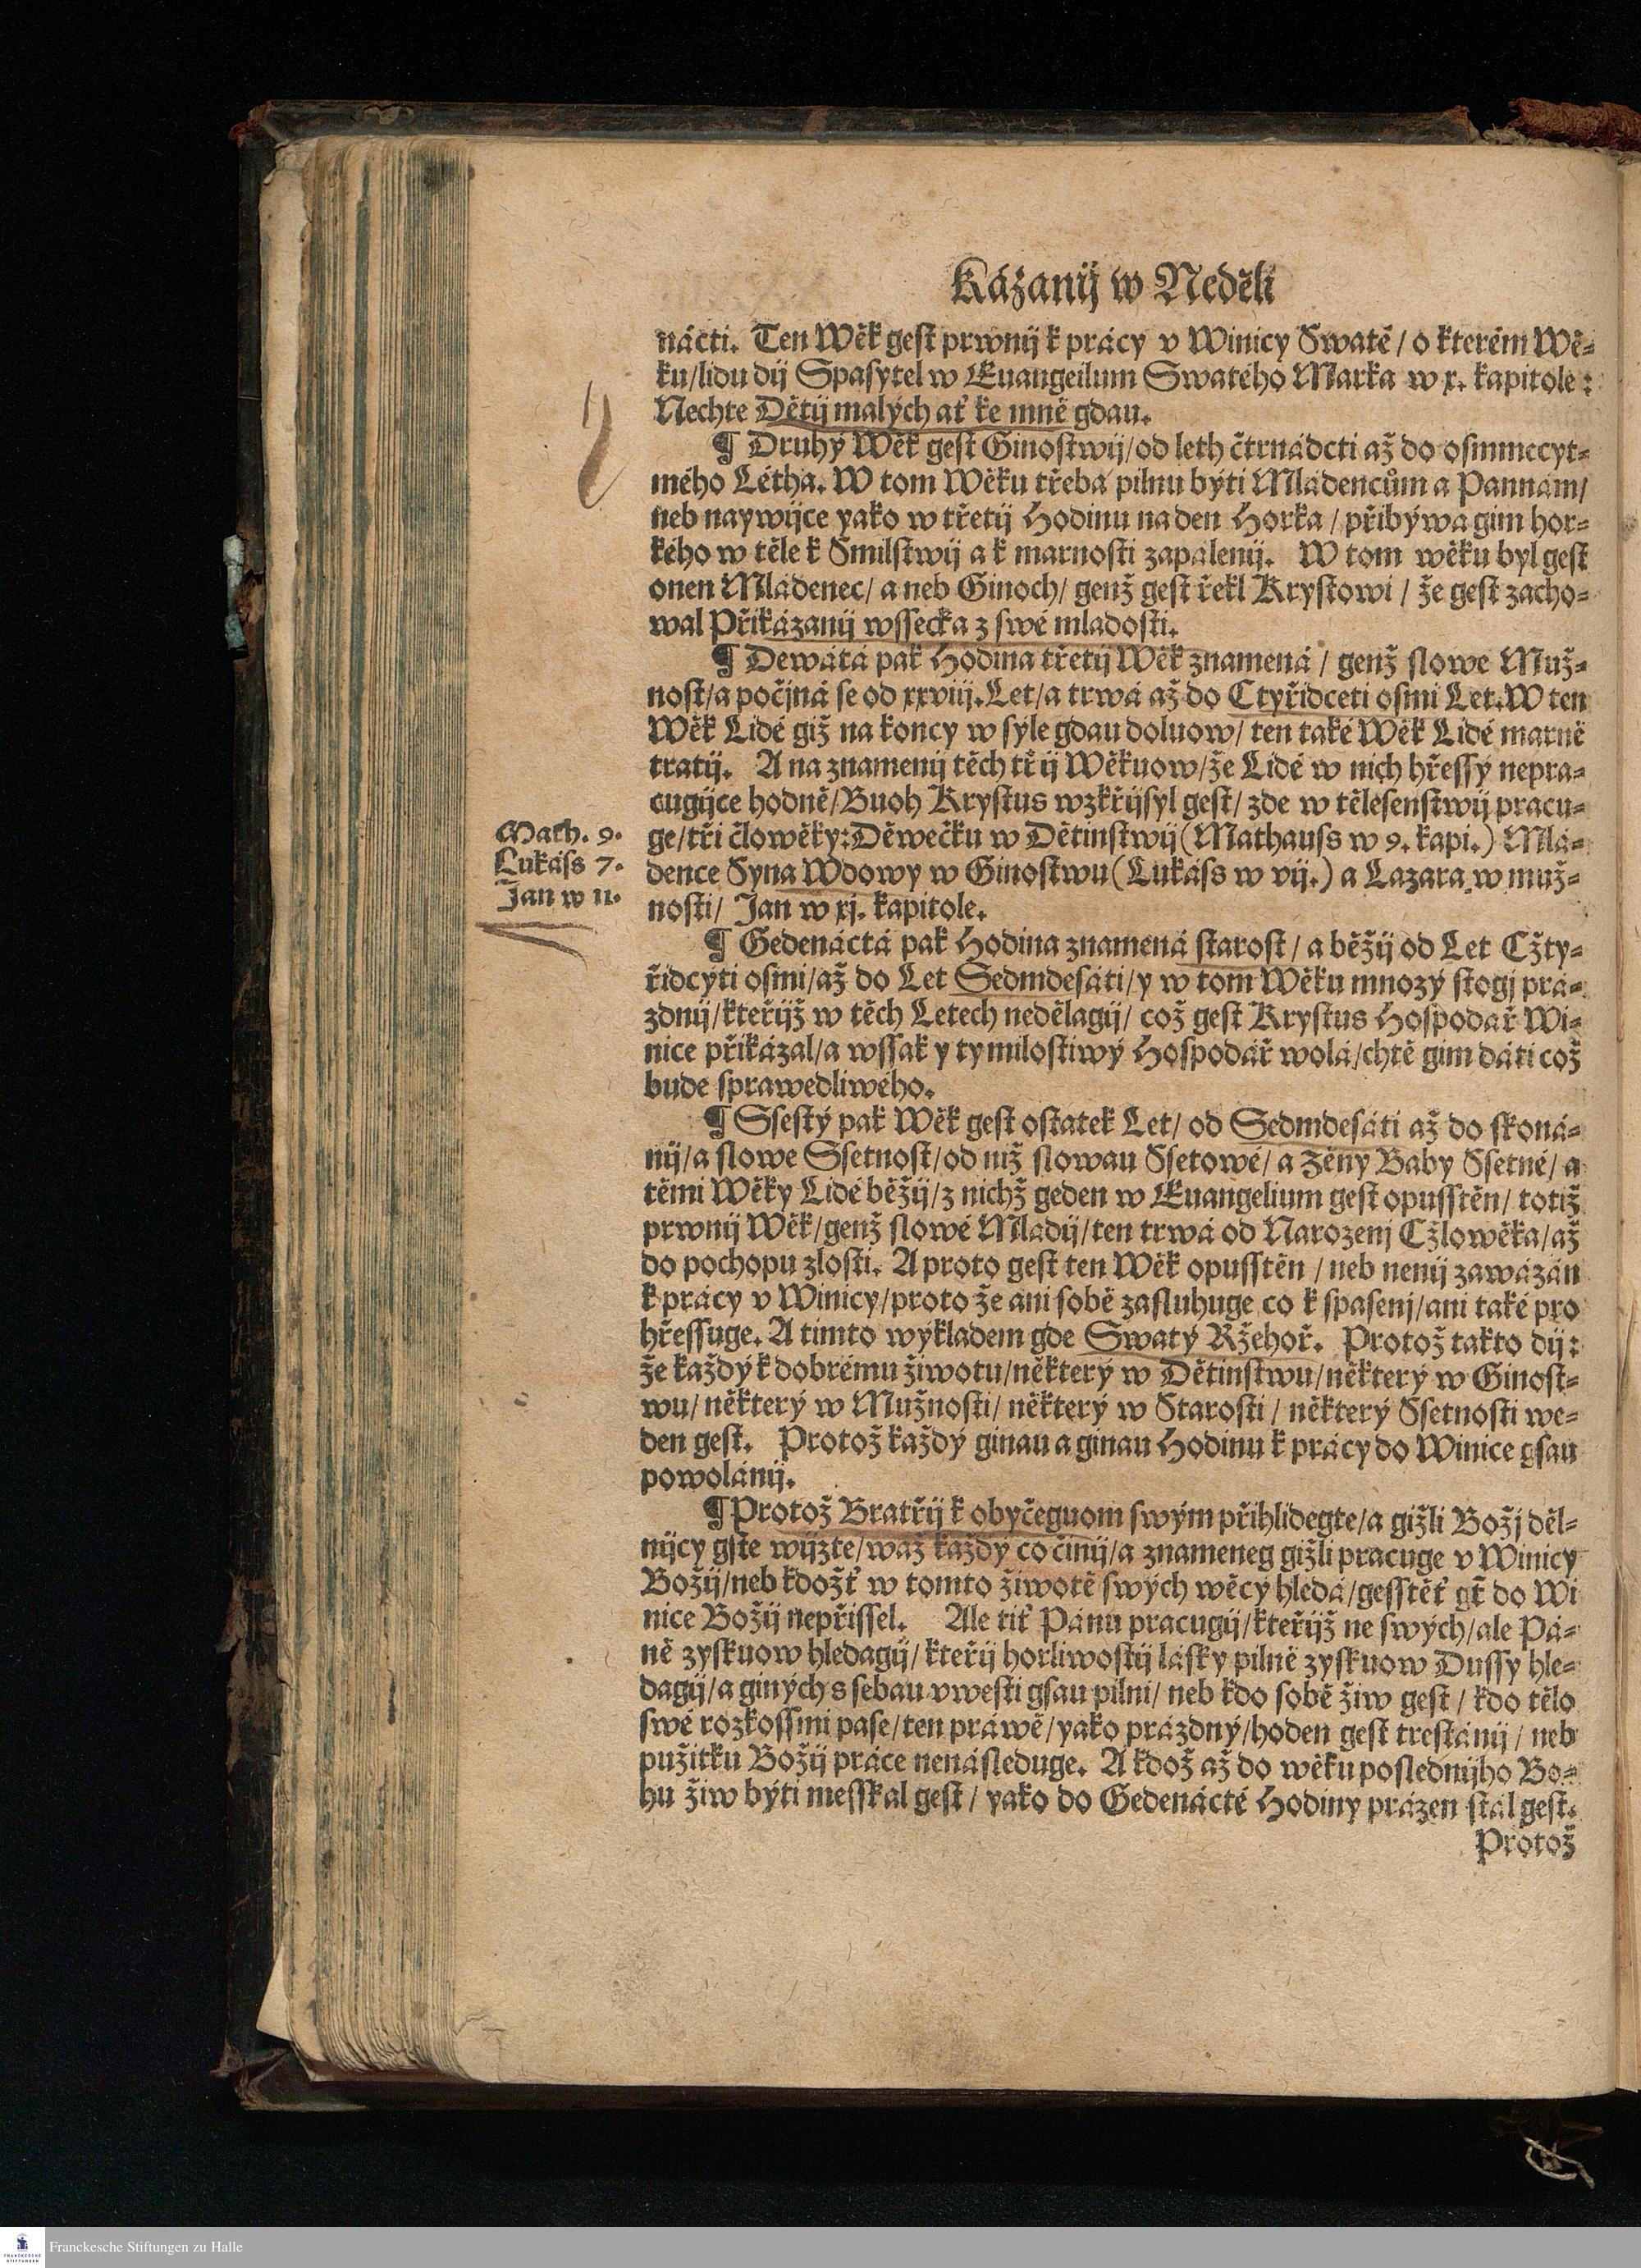 Kázanij w Neděli
nácti. Ten Wěk gest prwnij k prácy v Winicy Swaté / o kterém Wě-
ku/lidu dij Spasytel w Euangeilum Swatého Marka w x. kapitole:
Nechte Dětij malých ať ke mně gdau.
¶ Druhý Wěk gest Ginostwij/od leth čtrnádcti až do osmmecyt-
mého Létha. W tom Wěku třeba pilnu býti Mládencům a Pannám/
neb naywijce yako w třetij Hodinu na den Horka / přibýwa gim hor-
kého w těle k Smilstwij a k marnosti zapálenij. W tom wěku byl gest
onen Mládenec/ a neb Ginoch/ genž gest řekl Krystowi / že gest zacho-
wal Přikázanij wssecka z swé mladosti.
¶ Dewátá pak Hodina třetij Wěk znamená / genž slowe Muž-
nost/a počjná se od xxviij.Let/a trwá až do Ctyřidceti osmi Let.W ten
Wěk Lidé giž na koncy w syle gdau doluow/ ten také Wěk Lidé marně
tratij. A na znamenij těch třij Wěkuow/že Lidé w nich hřessý nepra-
cugijce hodně/Buoh Krystus wzkřijsyl gest/ zde w tělesenstwij pracu-
ge/tři člowěky:Děwečku w Dětinstwij(Mathauss w 9. kapi.) Mlá-
dence Syna Wdowy w Ginostwu(Lukáss w vij.) a Lazara w muž-
nosti/ Jan w xj. kapitole.
Math. 9.
Lukáss 7.
Jan w 11.
¶ Gedenáctá pak Hodina znamená starost / a běžij od Let Cžty-
řidcyti osmi/až do Let Sedmdesáti/y w tom Wěku mnozý stogj prá-
zdnij/kteřijž w těch Letech nedělagij/ což gest Krystus Hospodař Wi-
nice přikázal/a wssak y ty milostiwý Hospodář wolá/chtě gim dáti což
bude sprawedliwého.
¶ Ssestý pak Wěk gest ostatek Let/ od Sedmdesáti až do skoná-
nij/a slowe Ssetnost/od niž slowau Ssetowé/ a Zěny Baby Ssetné/ a
těmi Wěky Lidé běžij/z nichž geden w Euangelium gest opusstěn/ totiž
prwnij Wěk/genž slowé Mladij/ten trwá od Narozenj Cžlowěka/až
do pochopu zlosti. A proto gest ten Wěk opusstěn / neb nenij zawázán
k prácy v Winicy/proto že ani sobě zasluhuge co k spasenj/ani také pro
hřessuge. A timto wykladem gde Swatý Ržehoř. Protož takto dij:
že každý k dobrému žiwotu/některý w Dětinstwu/některý w Ginost-
wu/ některý w Mužnosti/ některý w Starosti / některý Ssetnosti we-
den gest. Protož každý ginau a ginau Hodinu k prácy do Winice gsau
powolánij.
¶ Protož Bratřij k obyčeguom swým přihlidegte/a gižli Božj děl-
nijcy gste wijzte/waž každý co činij/a znameneg gižli pracuge v Winicy
Božij/neb kdožť w tomto žiwotě swých wěcý hledá/gesstěť gť do Wi
nice Božij nepřissel. Ale tiť Pánu pracugij/kteřijž ne swých/ale Pá-
ně zyskuow hledagij/ kteřij horliwostij lásky pilně zyskuow Dussý hle-
dagij/a giných s sebau vwesti gsau pilni/ neb kdo sobě žiw gest / kdo tělo
swé rozkossmi pase/ten práwě/yako prázdný/hoden gest trestánij / neb
pužitku Božij práce nenásleduge. A kdož až do wěku poslednijho Bo-
hu žiw býti messkal gest / yako do Gedenácté Hodiny prázen stál gest.
Protož
Franckesche Stiftungen zu Halle